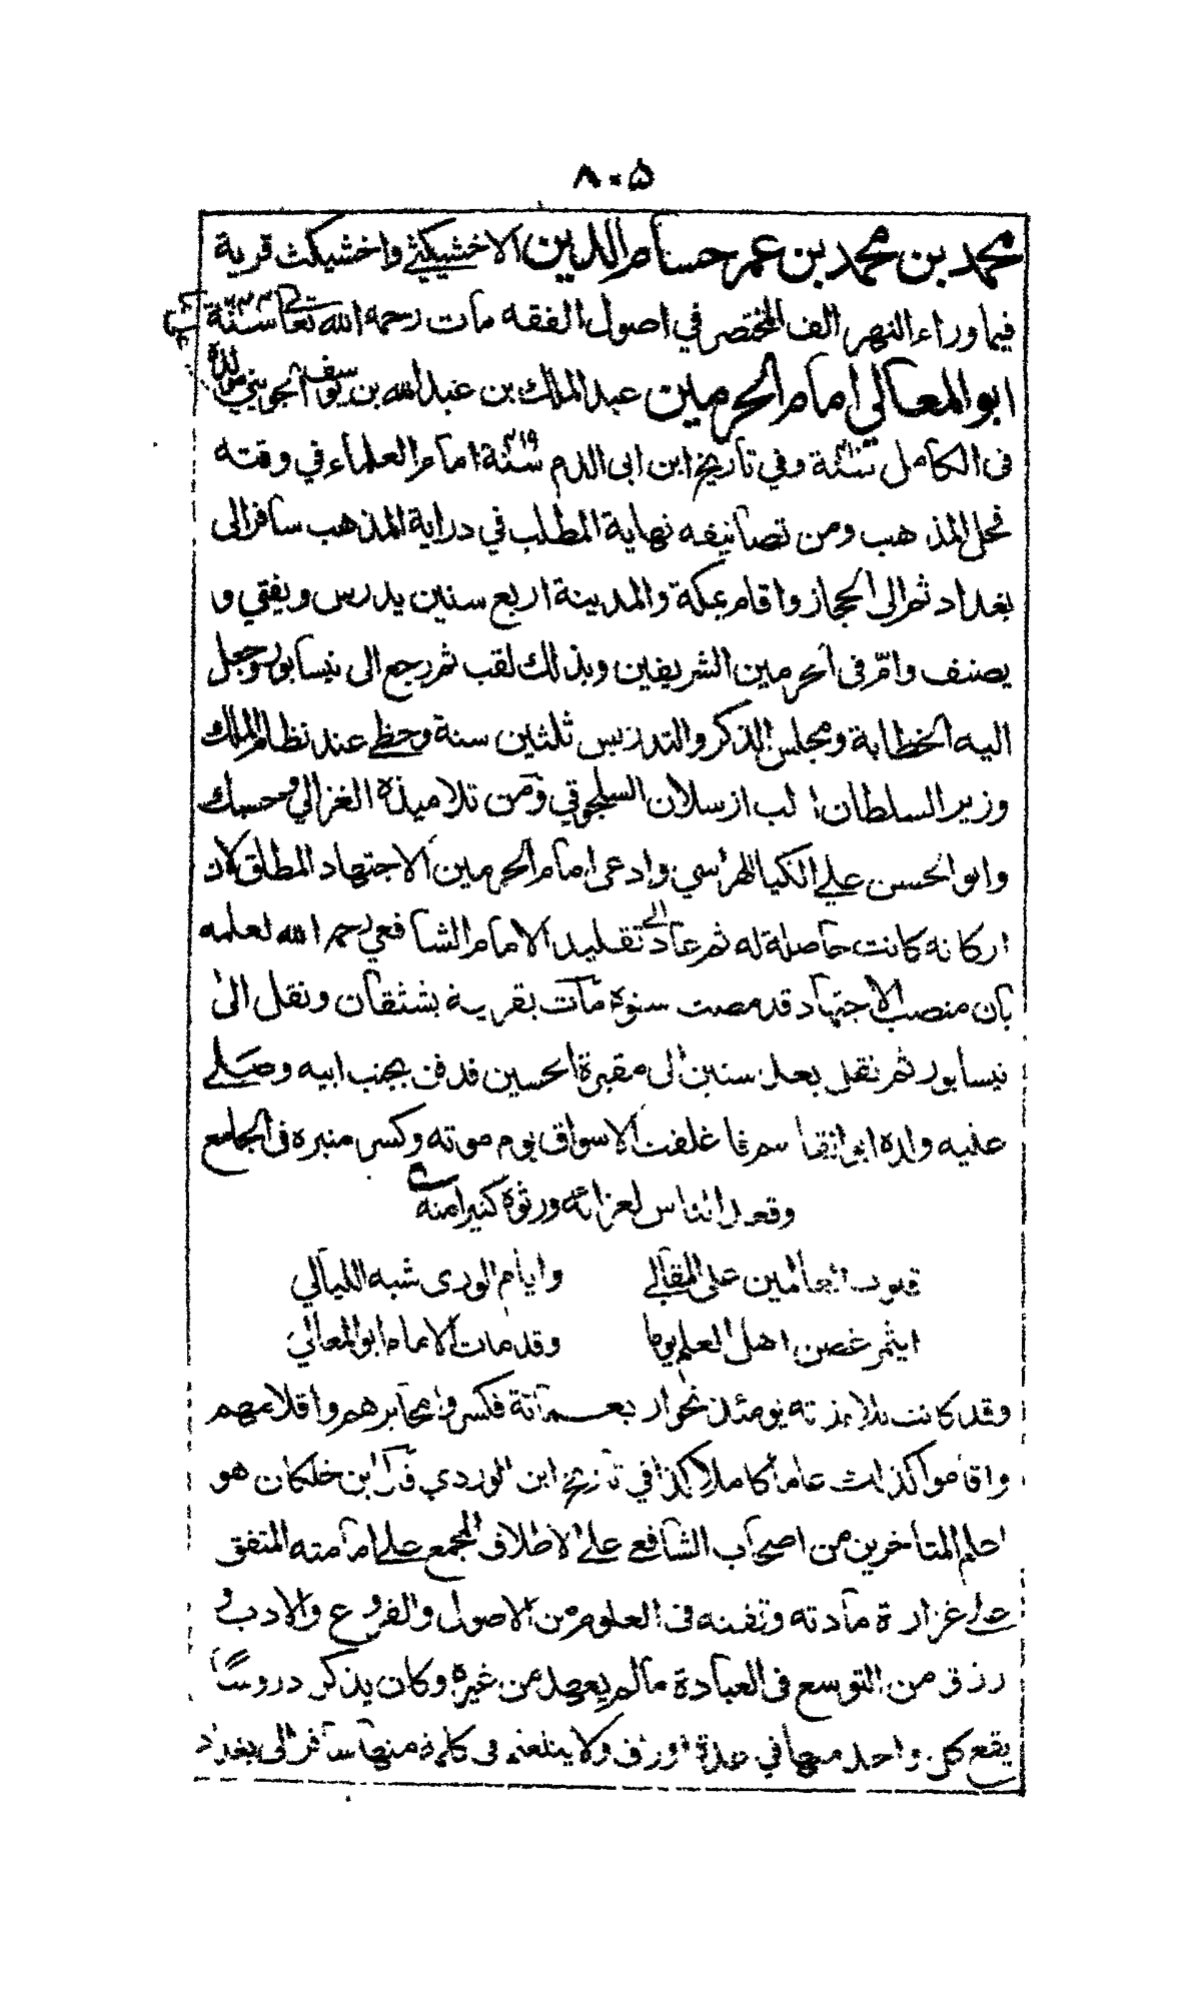 ٨٠٥
محمد بن محمد بن عمر حسام الدين الاخشيكثي واخشيكث قرية
فيما وراء النهر الف المختصر في اصول الفقه مات رحمه الله تعالى سنة
ابو المعالي امام الحرمين عبد الملك بن عبد الله بن يوسف الجويني مولده
فى الكامل سنة وفي تاريخ ابن ابى الدم سنة ٤١٩ امام العلماء في وقته
فحل المذهب ومن تصانيفه نهاية المطلب في دراية المذهب سافر الى
بغداد ثم الى الحجاز واقام بمكة والمدينة اربع سنين يدرس ويفتي و
يصنف وامّ فى الحرمين الشريفين وبذلك لقب ثم رجع الى نيسابور وجعل
اليه الخطابة ومجلس الذكر والتدريس ثلثين سنة وحظي عند نظام الملك
وزير السلطان الب ارسلان السلجوقي ومن تلاميذه الغزالي وحسبك
وابو الحسن علي الكيا الهراسي وادعى امام الحرمين الاجتهاد المطلق لان
اركانه كانت حاصلة له ثم عاد الى تقليد الامام الشافعي رحمه الله لعلمه
بان منصب الاجتهاد قد مضت سنوه مات بقرية بشتقان ونقل الى
نيسابور ثم نقل بعد سنين الى مقبرة الحسين فدفن بجنب ابيه وصلى
عليه ولده ابو القاسم فاغلقت الاسواق يوم موته وكسر منبره فى الجامع
وقعد الناس لعزائه ورثوه كثيرا منه
قلوب العالمين على المقالي وايام الورى شبه الليالي
ايثمر غصن اهل العلم يوما وقد مات الامام ابو المعالي
وقد كانت تلامذته يومئذ نحو اربعمائة فكسروا محابرهم واقلامهم
واقاموا كذلك عاما كاملا كذا في تاريخ ابن الوردي قال ابن خلكان هو
اعلم المتاخرين من اصحاب الشافعي على الاطلاق المجمع على امامته المتفق
على غزارة مادته وتفننه فى العلوم من الاصول والفروع والادب و
رزق من التوسع فى العبادة مالم يعهد من غيره وكان يذكر دروسًا
يقع كل واحد منها في عدة اوراق ولا يتلعثم فى كلمة منها سافر الى بغداد